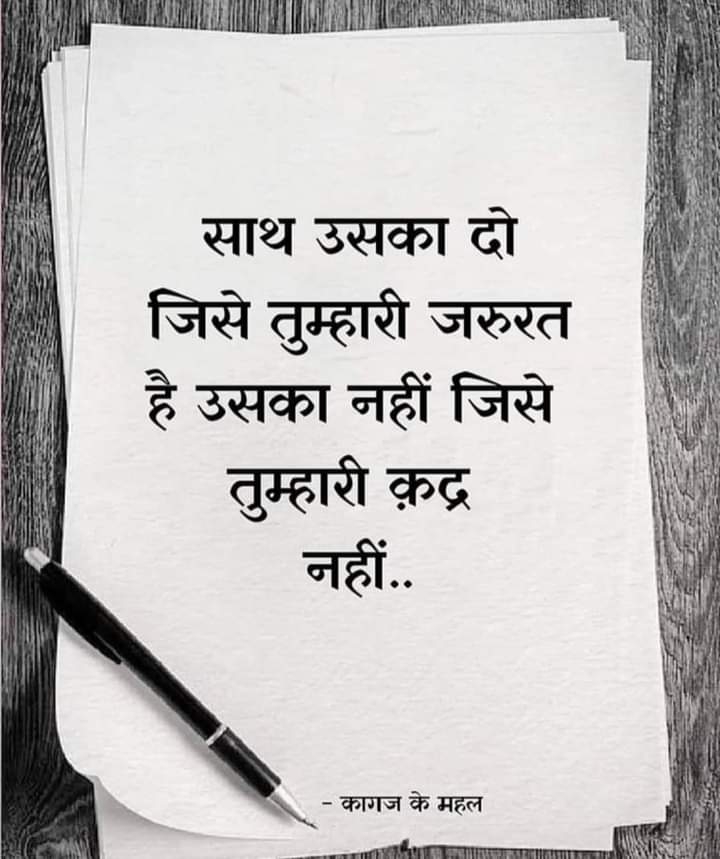 साथ उसका दो
जिसे तुम्हारी जरुरत
है उसका नहीं जिसे
तुम्हारी क़द्र
नहीं..
- कागज के महल